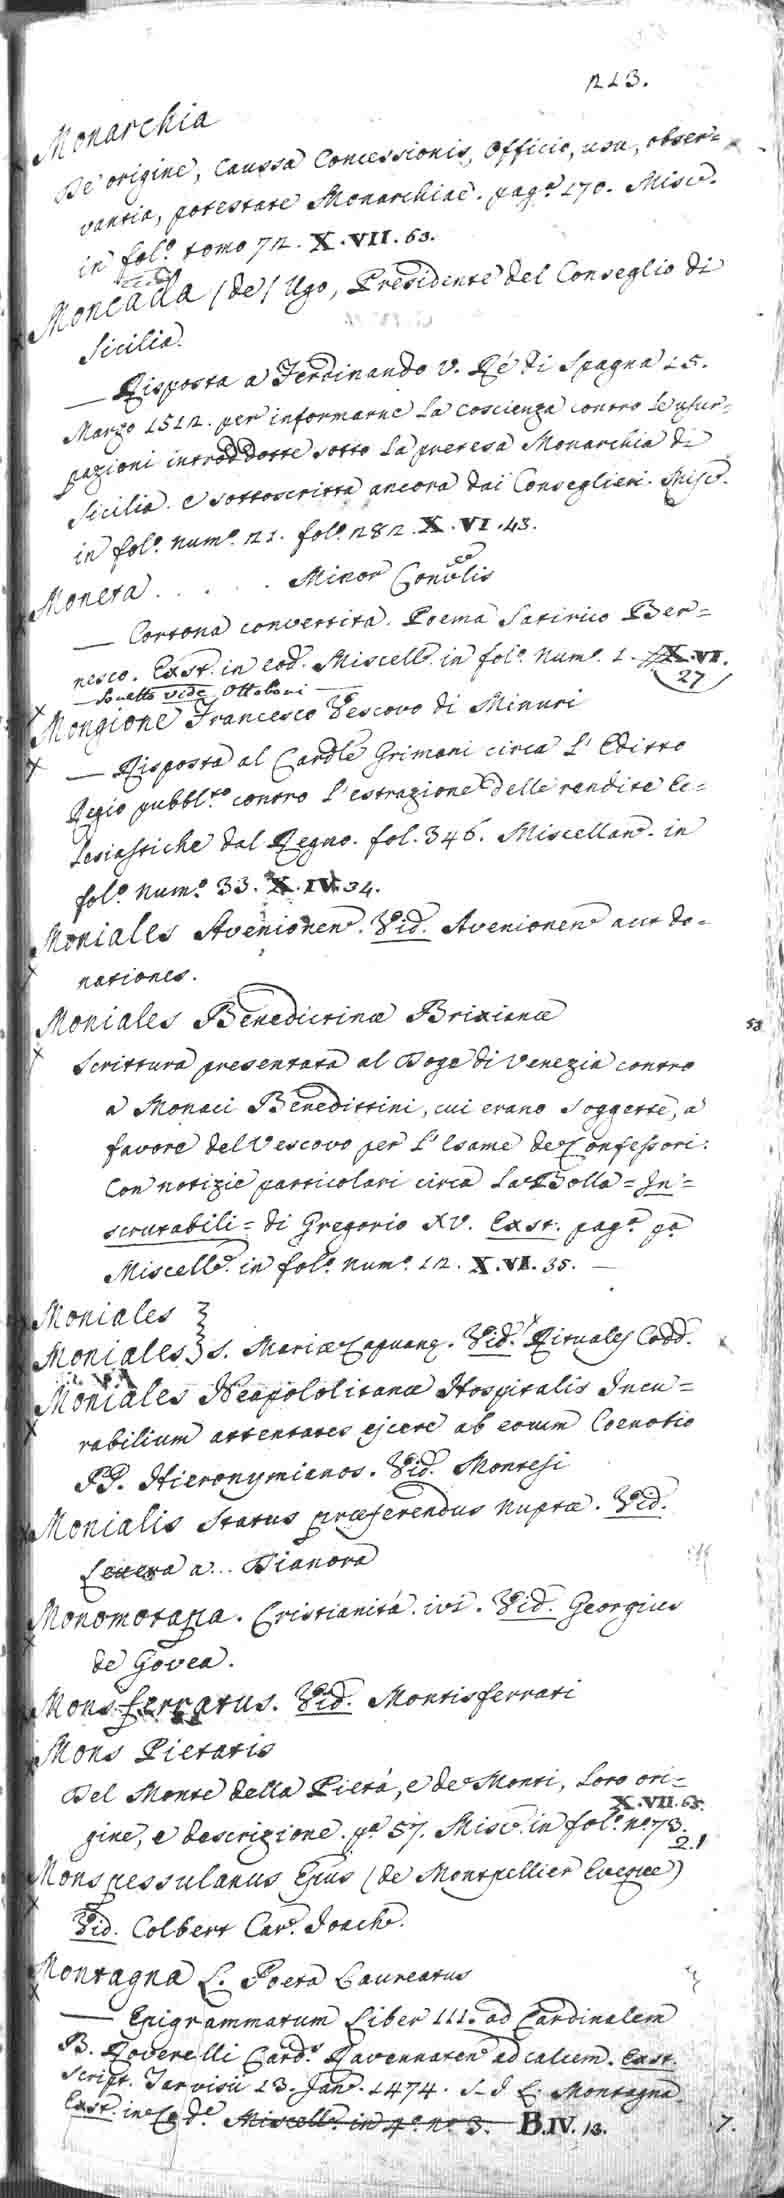 213.
Monarchia
De origine, Caussa Concessionis, Officio, usu, obser=
vantia, potestate Monarchiae. pag.ª 170. Misc.
in fol.º tomo 72. X.VII.63.
Moncada (de) Ugo, Presidente del Conseglio di
Sicilia.
— Risposta a Ferdinando V. Rè di Spagna 15.
Marzo 1512. per informarne la coscienza contro le usur=
pazioni introddotte sotto la pretesa Monarchia di
Sicilia. e sottoscritta ancora dai Conseglieri. Misc.
in fol.º num.º 21. fol.º 282. X.VI.43.
Moneta . . . . . Minor
— Cortona convertita. Poema Satirico Ber=
nesco. Exst. in eod. Miscell. in fol.º num.º 1. X.VI.
27
— Sonetto vide Ottoboni —
Mongione Francesco Vescovo di Minuri
— Risposta al Cardle Grimani circa l'Editto
Regio pubbl.to contro l'estrazione delle rendite Ec=
lesiastiche dal Regno. fol. 346. Miscellan. in
fol.º num.º 33. X.IV.34.
Moniales Avenionen. Vid. Avenionen aut do=
nationes.
Moniales Benedictinæ Brixianæ
53
Scrittura presentata al Doge di Venezia contro
a Monaci Benedittini, cui erano soggette, a
favore del Vescovo per l'Esame de Confessori:
Con notizie particolari circa la Bolla = In=
scrutabili = di Gregorio XV. Exst. pag.ª p.ª
Miscell. in fol.º num.º 12. X.VI.35. —
Moniales
Moniales S. Mariæ Capuanę. Vid. Rituales Codd.
Moniales Neapololitanæ Hospitalis Incu=
rabilium attentates ejcere ab eorum Coenobio
PP. Hieronymianos. Vid. Montesi
Monialis Status præferendus nuptæ. Vid.
Lettera a... Dianora
Monomotapa. Cristianità ivi. Vid. Georgius
de Govea.
Mons ferratus. Vid. Montisferrati
Mons Pietatis
Del Monte della Pietà, e de Monti, loro ori=
X.VII.63.
gine, e descrizione. p.ª 57. Misc. in fol.º n.º 73.
2.1
Mons pessulanus Epus (de Montpellier Eveque)
Vid. Colbert Car. Joach.
Montagna L. Poeta Laureatus
— Epigrammatum Liber III. ad Cardinalem
B. Roverelli Card.s Ravennaten ad calcem. Exst.
Script. Tarvisii 13. Jan. 1474. L. Montagna
Exst. in Cod.e Miscell. in 4.º n.º 3. B.IV.13.
7.